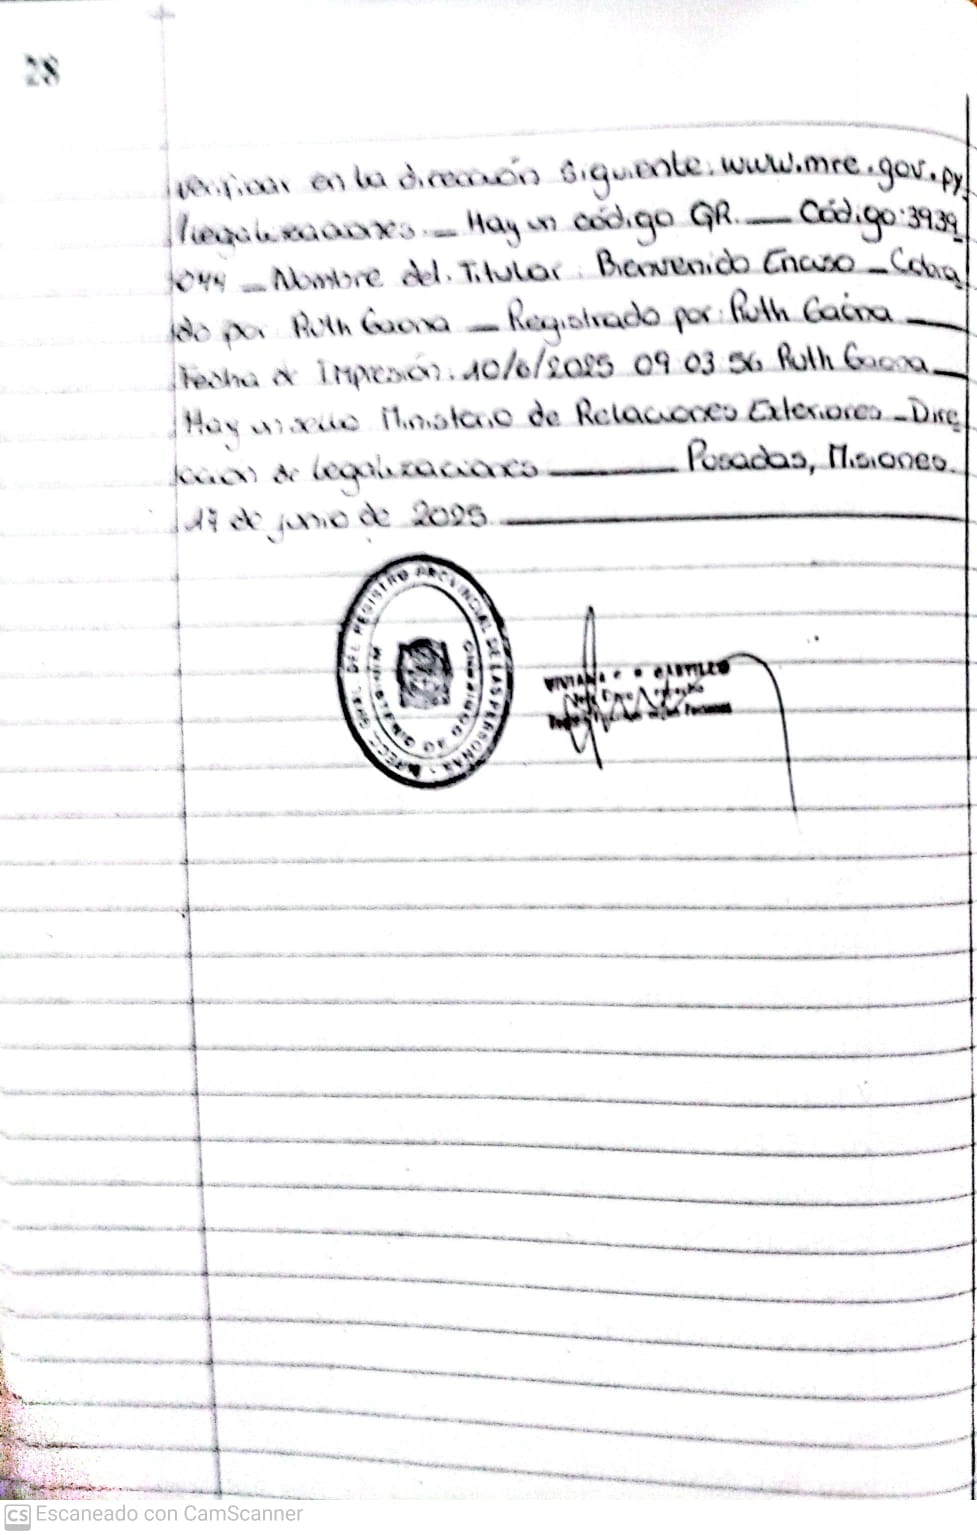 28
verificar en la dirección siguiente: www.mre.gov.py
/legalizaciones. — Hay un código QR. — Código: 3939
044 — Nombre del Titular: Bienvenido Enciso — Cobra
do por Ruth Gaona — Registrado por: Ruth Gaona —
Fecha de Impresión: 10/6/2025 09 03 56 Ruth Gaona —
Hay un sello Ministerio de Relaciones Exteriores — Dire
cción de legalizaciones — Posadas, Misiones.
17 de junio de 2025 —
GRAL. DEL REGISTRO PROVINCIAL DE LAS PERSONAS
MINISTERIO DE GOBIERNO
CASTILLO
CS Escaneado con CamScanner